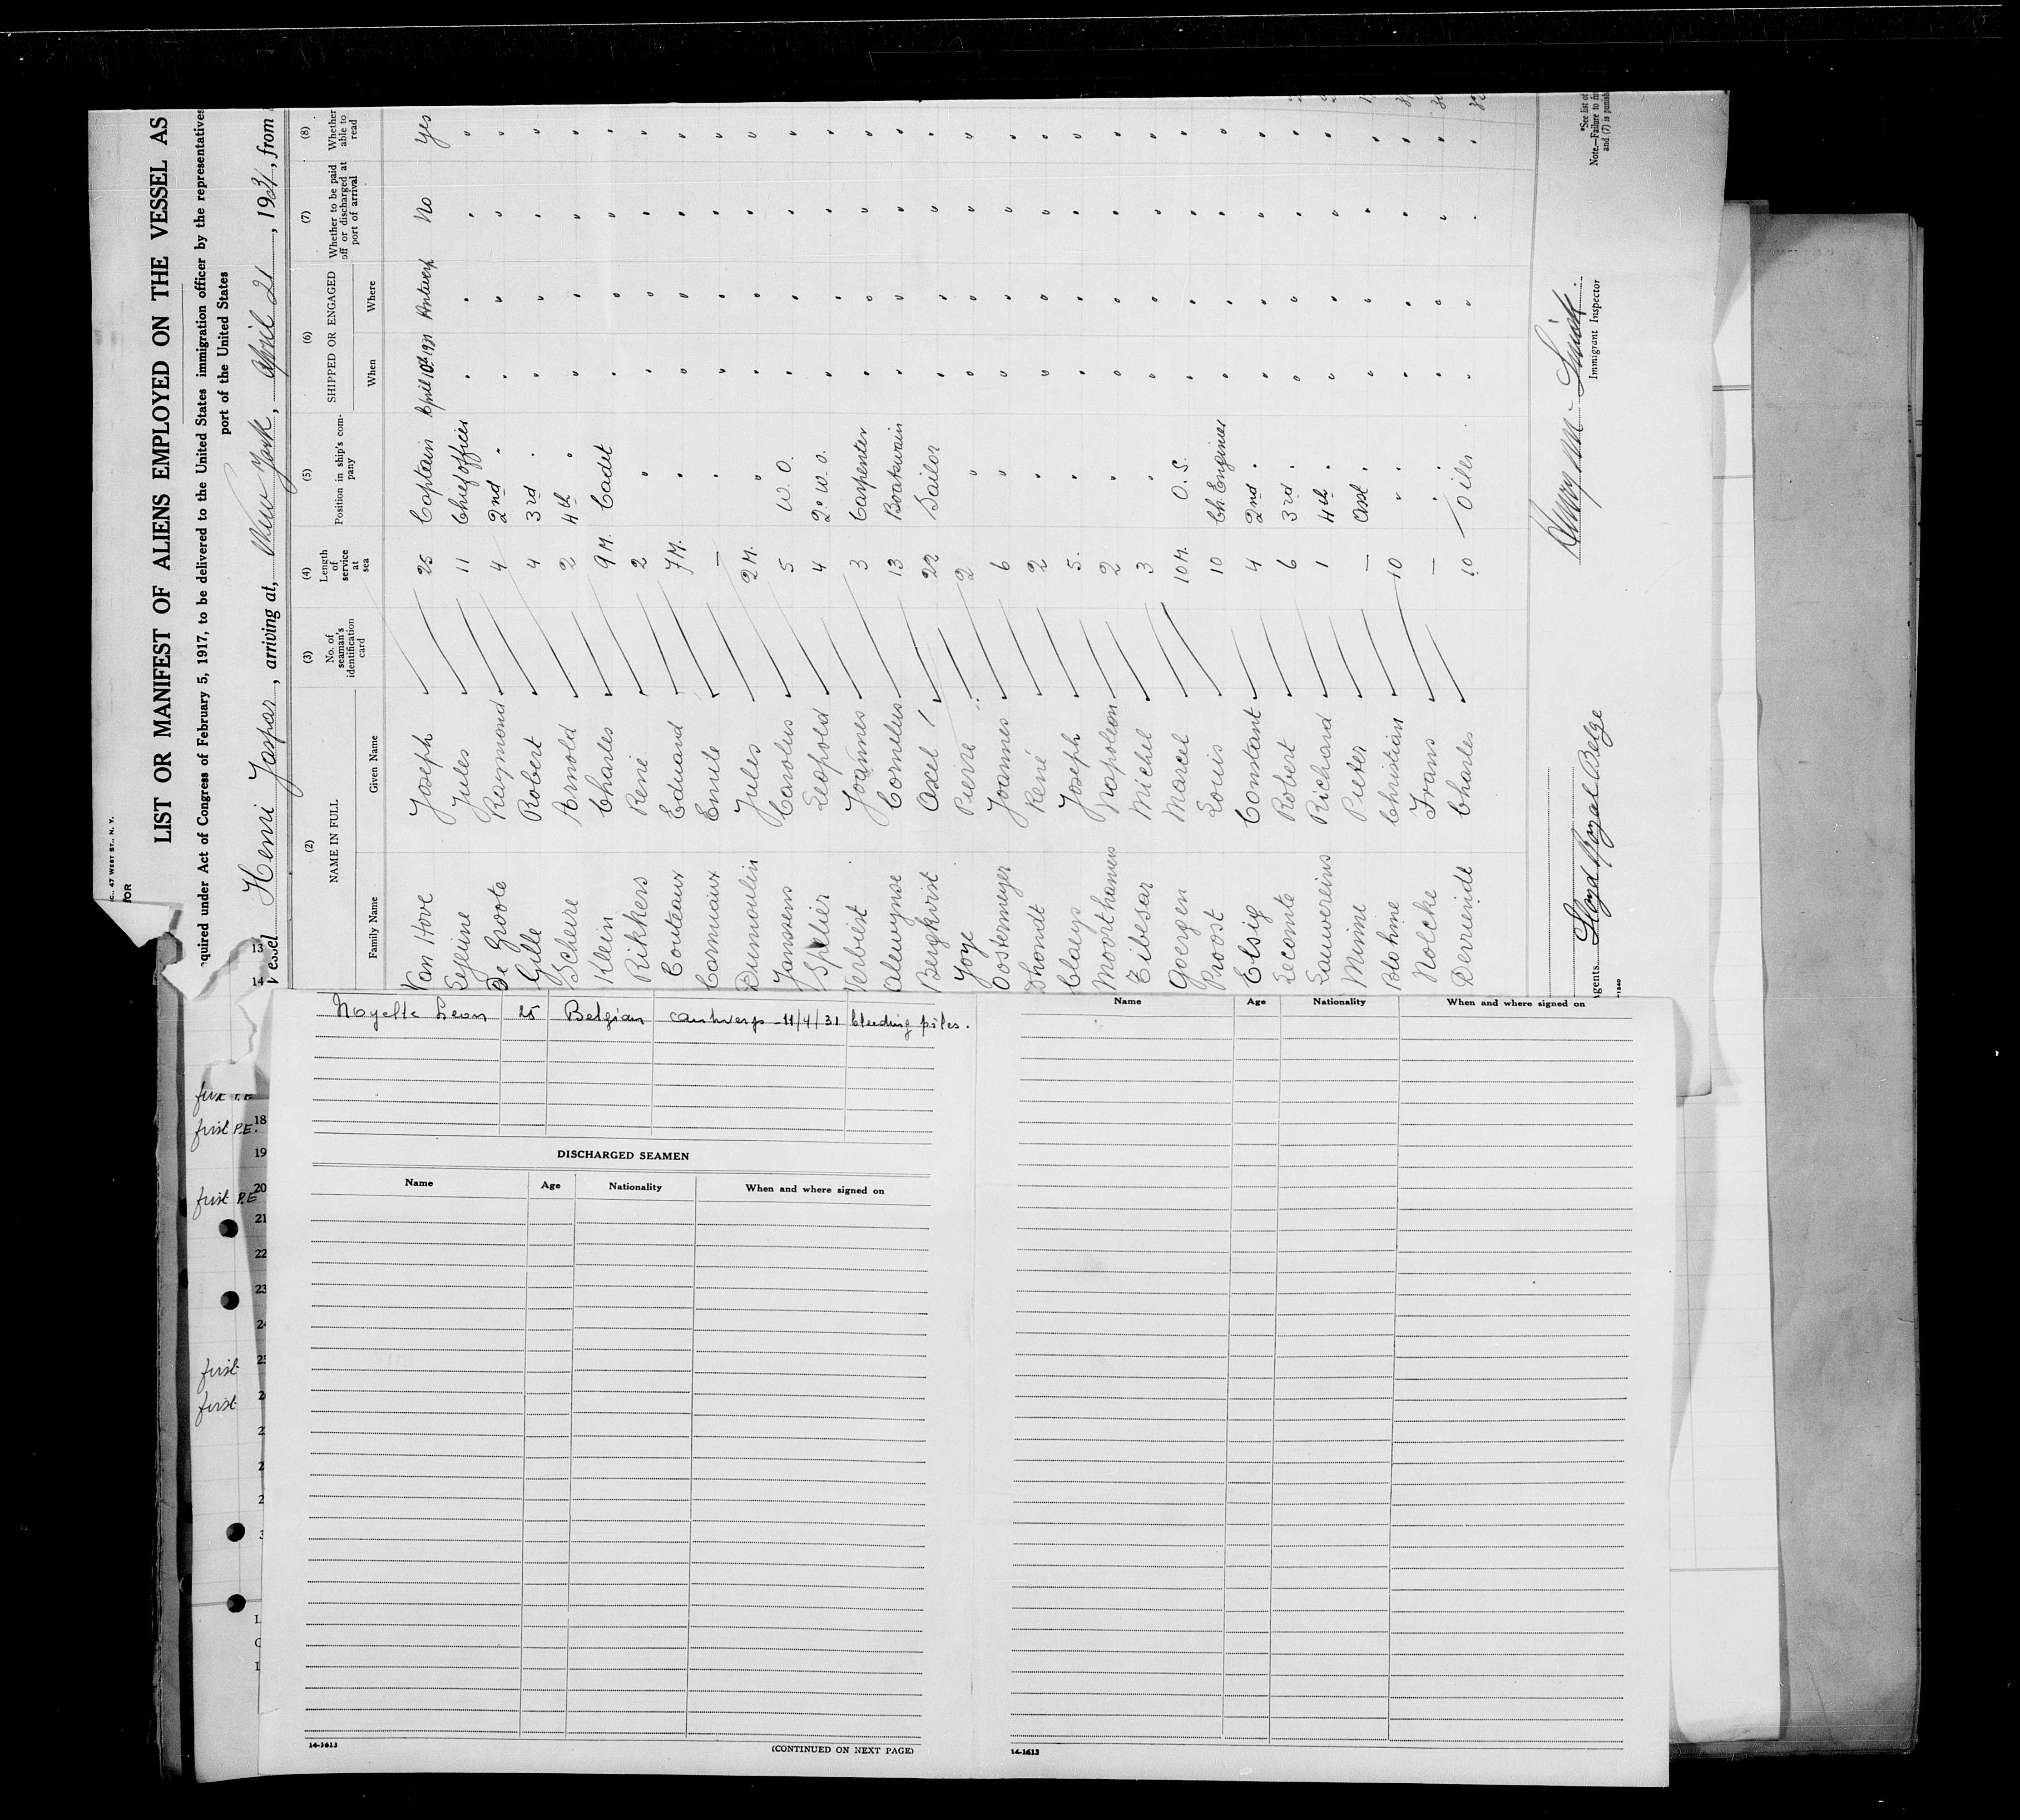 C., 47 WEST ST., N. Y.
FOR
LIST OR MANIFEST OF ALIENS EMPLOYED ON THE VESSEL AS
equired under Act of Congress of February 5, 1917, to be delivered to the United States immigration officer by the representatives
port of the United States
Vessel Henri Jaspar, arriving at, New York, April 21, 1931, from
(2) (3) (4) (5) (6) (7) (8)
NAME IN FULL No. of seaman's identification card Length of service at sea Position in ship's company SHIPPED OR ENGAGED Whether to be paid off or discharged at port of arrival Whether able to read
Family Name Given Name When Where
Van Hove Joseph 25 Captain April 10th 1931 Antwerp No Yes
Lejeune Jules 11 Chief officer " " " "
De Groote Raymond 4 2nd " " " " "
Gille Robert 4 3rd " " " " "
Schere Arnold 2 4th " " " " "
Klein Charles 9 M. Cadet " " " "
Rikkers René 2 " " " " "
Couteaux Eduard 7 M. " " " " "
Carmiaux Emile — " " " " "
Dumoulin Jules 2 M. " " " " "
Janssens Carolus 5 W. O. " " " "
Spelier Leopold 4 2° W. O. " " " "
Verbiest Joannes 3 Carpenter " " " "
Alewynse Cornelus 13 Boatswain " " " "
Bergkvist Axel 22 Sailor " " " "
Joye Pierre 2 " " " " "
Oostermeyer Joannes 6 " " " " "
Dhondt René 2 " " " " "
Claeys Joseph 5. " " " " "
Moorthamers Napoleon 2 " " " " "
Tibesar Michel 3 " " " " "
Goergen Marcel 10 M. O. S. " " " "
Proost Louis 10 Ch. Engineer " " " "
Elsig Constant 4 2nd " " " " "
Lecomte Robert 6 3rd " " " " "
Lauwereins Richard 1 4th " " " " "
Minne Pieter — Asst " " " " "
Blohme Christian 10 " " " " "
Nolcke Frans — " " " " "
Derriendt Charles 10 Oiler " " " "
Agents Lloyd Royal Belge
Immigrant Inspector
*See list of
Note.—Failure to fu
and (7) is punish
13
14
Noyelle Leon 25 Belgian Antwerp - 11/4/31 bleeding piles.
DISCHARGED SEAMEN
Name Age Nationality When and where signed on
14-1613
(CONTINUED ON NEXT PAGE)
Name Age Nationality When and where signed on
14-1613
first P.E. 18
19
first P.E 20
21
22
23
first
first